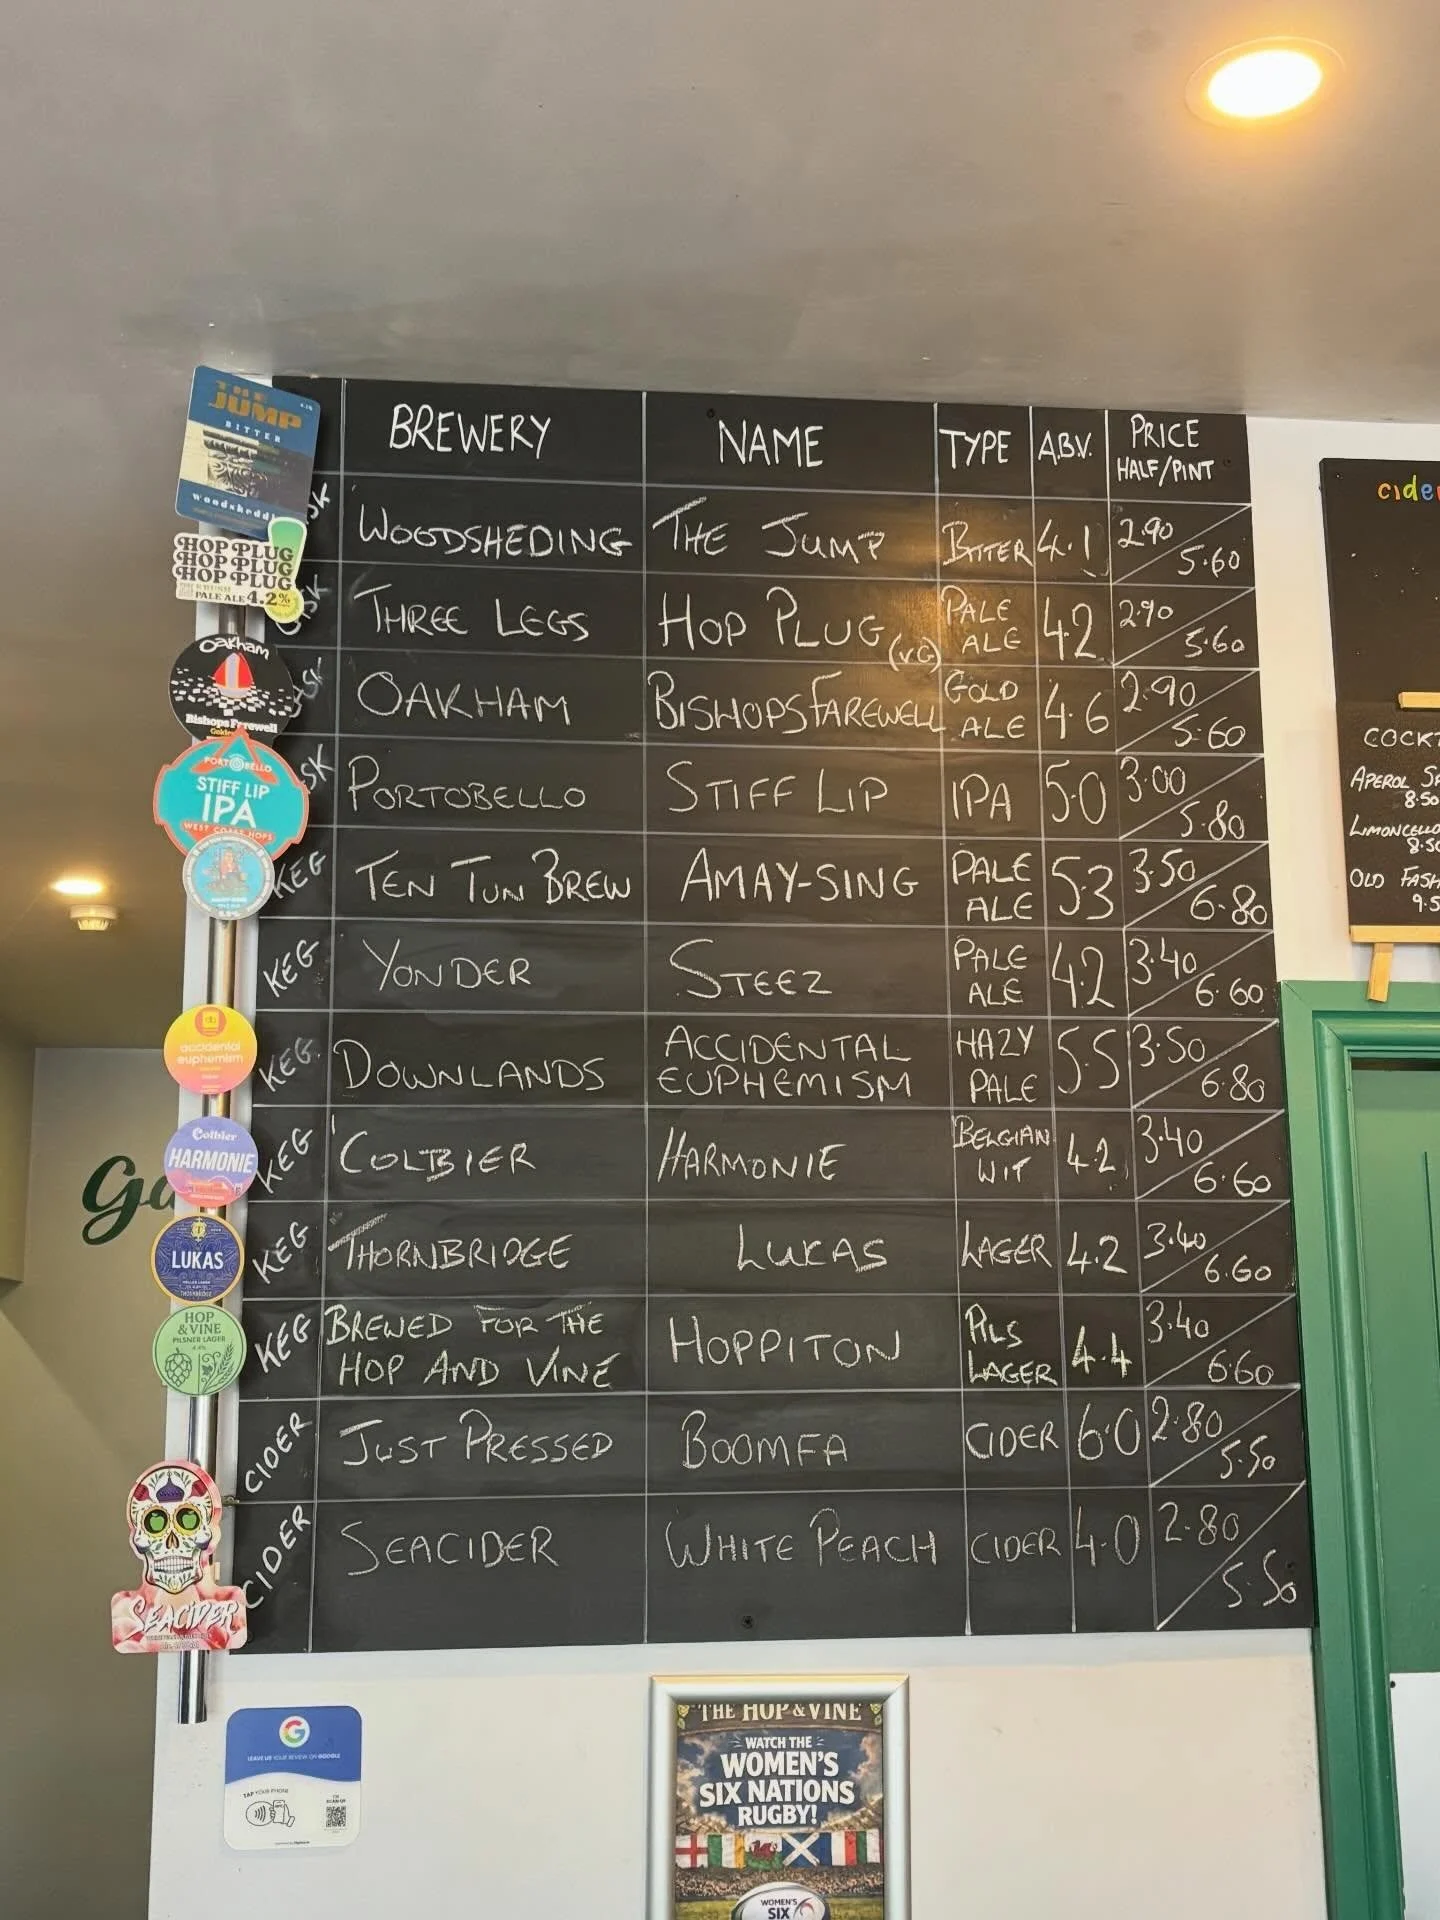 BREWERY NAME TYPE A.B.V. PRICE HALF/PINT
WOODSHEDING THE JUMP BITTER 4.1 2.90 5.60
THREE LEGS HOP PLUG (VG) PALE ALE 4.2 2.90 5.60
OAKHAM BISHOPS FAREWELL GOLD ALE 4.6 2.90 5.60
PORTOBELLO STIFF LIP IPA 5.0 3.00 5.80
KEG TEN TUN BREW AMAY-SING PALE ALE 5.3 3.50 6.80
KEG YONDER STEEZ PALE ALE 4.2 3.40 6.60
KEG DOWNLANDS ACCIDENTAL EUPHEMISM HAZY PALE 5.5 3.50 6.80
KEG COLTBIER HARMONIE BELGIAN WIT 4.2 3.40 6.60
KEG THORNBRIDGE LUKAS LAGER 4.2 3.40 6.60
KEG BREWED FOR THE HOP AND VINE HOPPITON PILS LAGER 4.4 3.40 6.60
CIDER JUST PRESSED BOOMFA CIDER 6.0 2.80 5.50
CIDER SEACIDER WHITE PEACH CIDER 4.0 2.80 5.50
THE
JUMP
BITTER
HOP PLUG
HOP PLUG
HOP PLUG
PALE ALE 4.2%
Oakham
Bishops Farewell
PORTOBELLO
STIFF LIP
IPA
WEST COAST HOPS
accidental
euphemism
Colbier
HARMONIE
LUKAS
HOP
& VINE
PILSNER LAGER
4.4%
SEACIDER
Ga
COCKT
APEROL SP
8.50
LIMONCELLO
8.50
OLD FASH
9.5
cider
G
LEAVE US YOUR REVIEW ON GOOGLE
TAP YOUR PHONE
THE HOP & VINE
WATCH THE
WOMEN'S
SIX NATIONS
RUGBY!
WOMEN'S
SIX